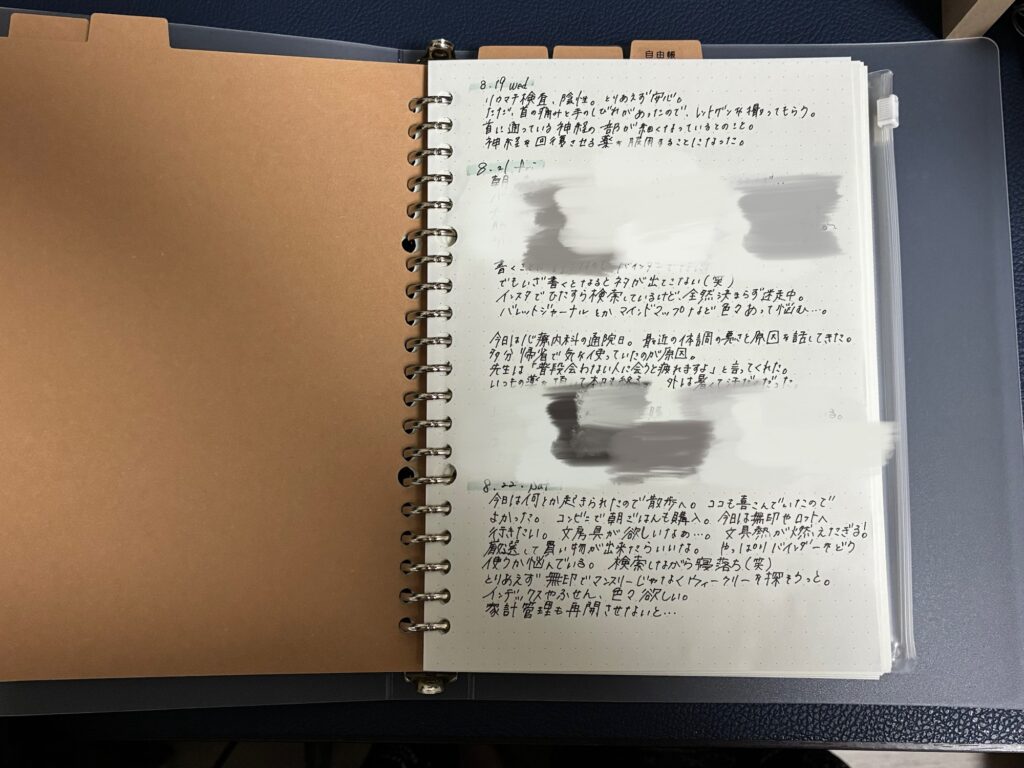 自由帳
8.19 wed
リウマチ検査、陰性。とりあえず安心。
ただ、首の痛みと手のしびれがあったので、レントゲンを撮ってもらう。
首に通っている神経の一部が細くなっているとのこと。
神経を回復させる薬を服用することになった。
8.21 fri
朝
書くこ
でもいざ書くとなるとネタが出てこない(笑)
インスタでひたすら検索しているけど、全然決まらず迷走中。
バレットジャーナルとかマインドマップなど色々あって悩む…。
今日は心療内科の通院日。最近の体調の悪さと原因を話してきた。
多分帰省で気を使っていたのが原因。
先生は「普段会わない人に会うと疲れますよ」と言ってくれた。
いつもの薬 外は暑
8.22. sat
今日は何とか起きられたので散歩へ。ココも喜こんでいたので
よかった。コンビニで朝ごはんも購入。今日は無印やロフトへ
行きたい。文房具が欲しいなぁ…。文具熱が燃えたぎる!
厳選して買い物が出来たらいいな。やっぱりバインダーをどう
使うか悩んでいる。検索しながら寝落ち(笑)
とりあえず無印でマンスリーじゃなくウィークリーを探そうっと。
インデックスやふせん、色々欲しい。
家計管理も再開させないと…